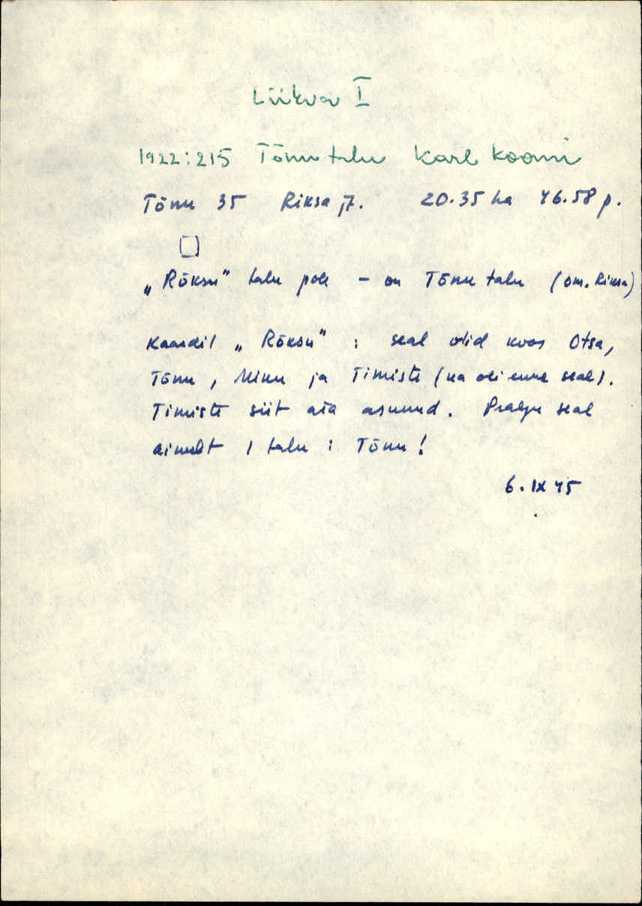 Liikva I
1922:215 Tõnu talu Karl Koomi
Tõnu 35 Riksa J. 20.35 ha 46.58 p.
„Rõksu" talu pole – on Tõnu talu (om. Riksa)
Kaardil „Rõksu": seal olid koos Otsa,
Tõnu, Minu ja Timiste (ka oli enne seal).
Timiste siit ära asunud. Praegu seal
ainult 1 talu: Tõnu!
6.IX 45